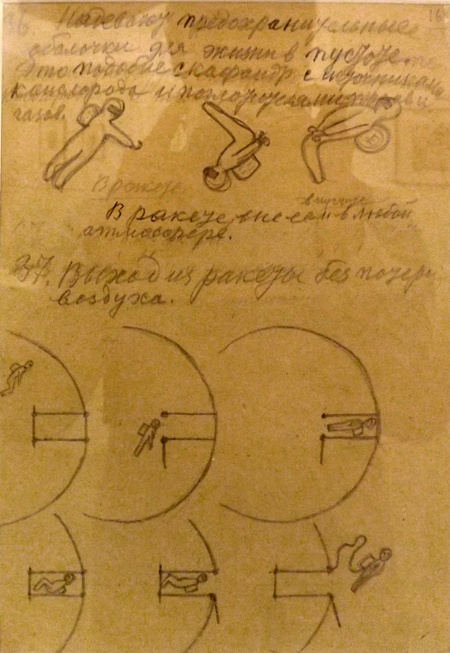 36. Надевают предохранительные
оболочки для жизни в пустоте.
Это подобие скафандр с источниками
кислорода и поглотителями паров и
газов.
В ракете
в пустоте
В ракете, вне её и в любой
атмосфере.
37. Выход из ракеты без потери
воздуха.